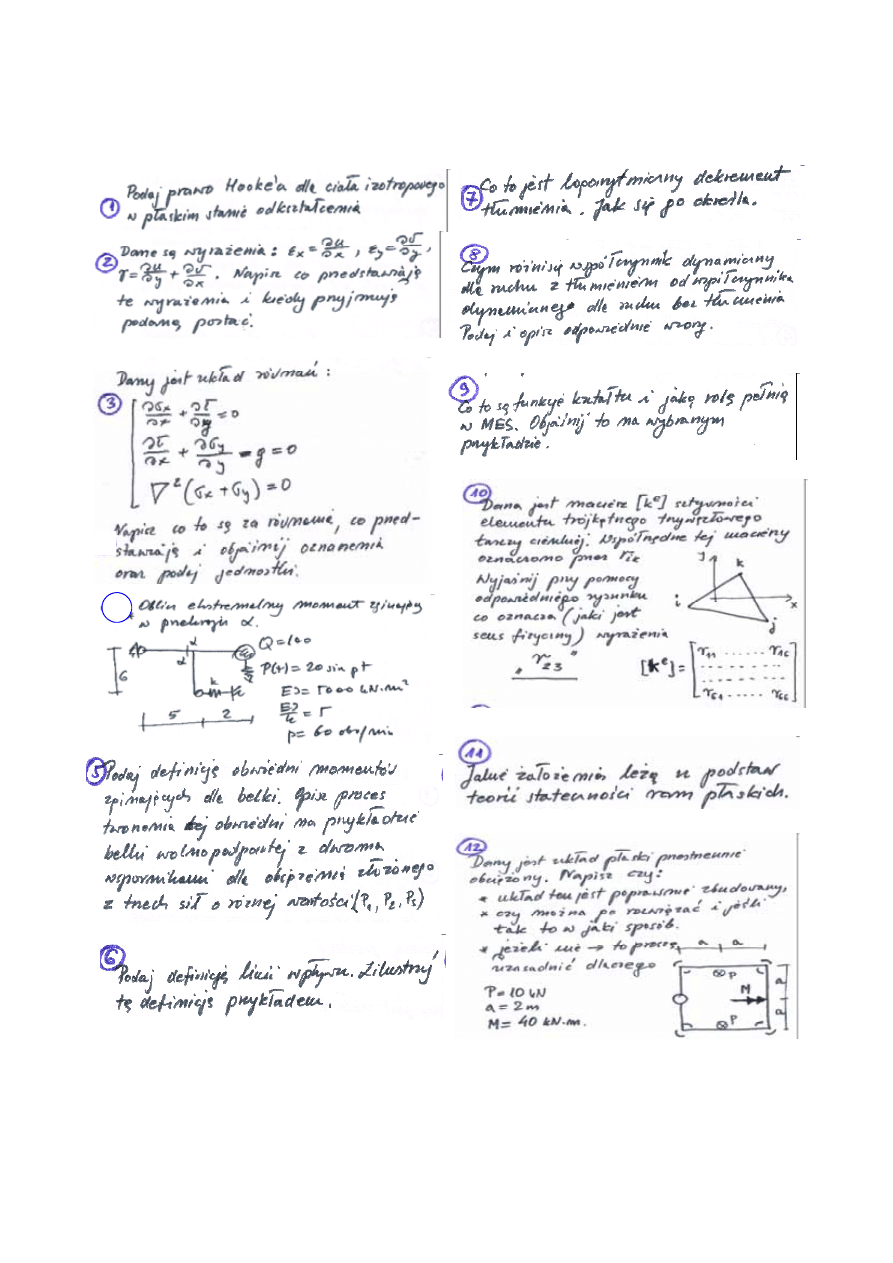 1 Podaj prawo Hooke'a dla ciała izotropowego
w płaskim stanie odkształcenia
2 Dane są wyrażenia: εx = ∂u/∂x, εy = ∂v/∂y,
γ = ∂u/∂y + ∂v/∂x. Napisz co przedstawiają
te wyrażenia i kiedy przyjmują
podaną postać.
Dany jest układ równań:
3
∂σx/∂x + ∂τ/∂y = 0
∂τ/∂x + ∂σy/∂y - g = 0
∇²(σx + σy) = 0
Napisz co to są za równania, co przed-
stawiają i objaśnij oznaczenia
oraz podaj jednostki.
Oblicz ekstremalny moment zginający
w przekroju α.
α
Q = 100
P(t) = 20 sin pt
EJ = 5000 kN·m²
EJ/k = 5
p = 60 obr/min
k
6
5 2
5 Podaj definicję obwiedni momentów
zginających dla belki. Opisz proces
tworzenia tej obwiedni na przykładzie
belki wolnopodpartej z dwoma
wspornikami dla obciążenia złożonego
z trzech sił o różnej wartości (P1, P2, P3)
6
Podaj definicję linii wpływu. Zilustruj
tę definicję przykładem.
7 Co to jest logarytmiczny dekrement
tłumienia. Jak się go określa.
8
Czym różni się współczynnik dynamiczny
dla ruchu z tłumieniem od współczynnika
dynamicznego dla ruchu bez tłumienia
Podaj i opisz odpowiednie wzory.
9
Co to są funkcje kształtu i jaką rolę pełnią
w MES. Objaśnij to na wybranym
przykładzie.
10
Dana jest macierz [kᵉ] sztywności
elementu trójkątnego trzywęzłowego
tarczy cienkiej. Współrzędne tej macierzy
oznaczono przez rik
Wyjaśnij przy pomocy
odpowiedniego rysunku
co oznacza (jaki jest
sens fizyczny) wyrażenia
„r23”
y k
i x
j
[kᵉ] = [r11 ...... r16
......
r61 ...... r66]
11
Jakie założenia leżą u podstaw
teorii stateczności ram płaskich.
12
Dany jest układ płaski przestrzennie
obciążony. Napisz czy:
* układ ten jest poprawnie zbudowany,
* czy można go rozwiązać i jeśli
tak to w jaki sposób.
* jeżeli nie → to proszę
uzasadnić dlaczego
P = 10 kN
a = 2 m
M = 40 kN·m.
a a
P
M
P
a
a